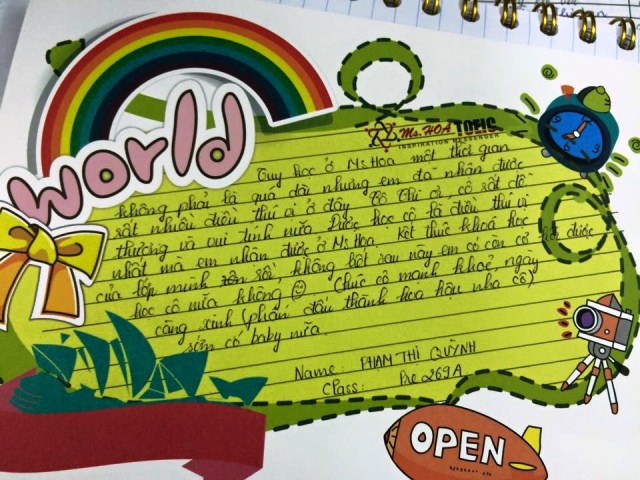 world
Ms. HOA TOEIC
INSPIRATION MESSENGER
Tuy học ở Ms.Hoa một thời gian
không phải là quá dài nhưng em đã nhận được
rất nhiều điều thú vị ở đây. Cô Thi ơi, cô rất dễ
thương và vui tính nữa. Được học cô là điều thú vị
nhất mà em nhận được ở Ms.Hoa. Kết thúc khoá học
của lớp mình rồi, không biết sau này em có còn cơ hội được
học cô nữa không ☺ Chúc cô mạnh khoẻ, ngày
càng xinh (phấn đấu thành hoa hậu nha cô)
sớm có baby nữa.
Name: PHẠM THỊ QUỲNH
Class: Pre 269A
OPEN